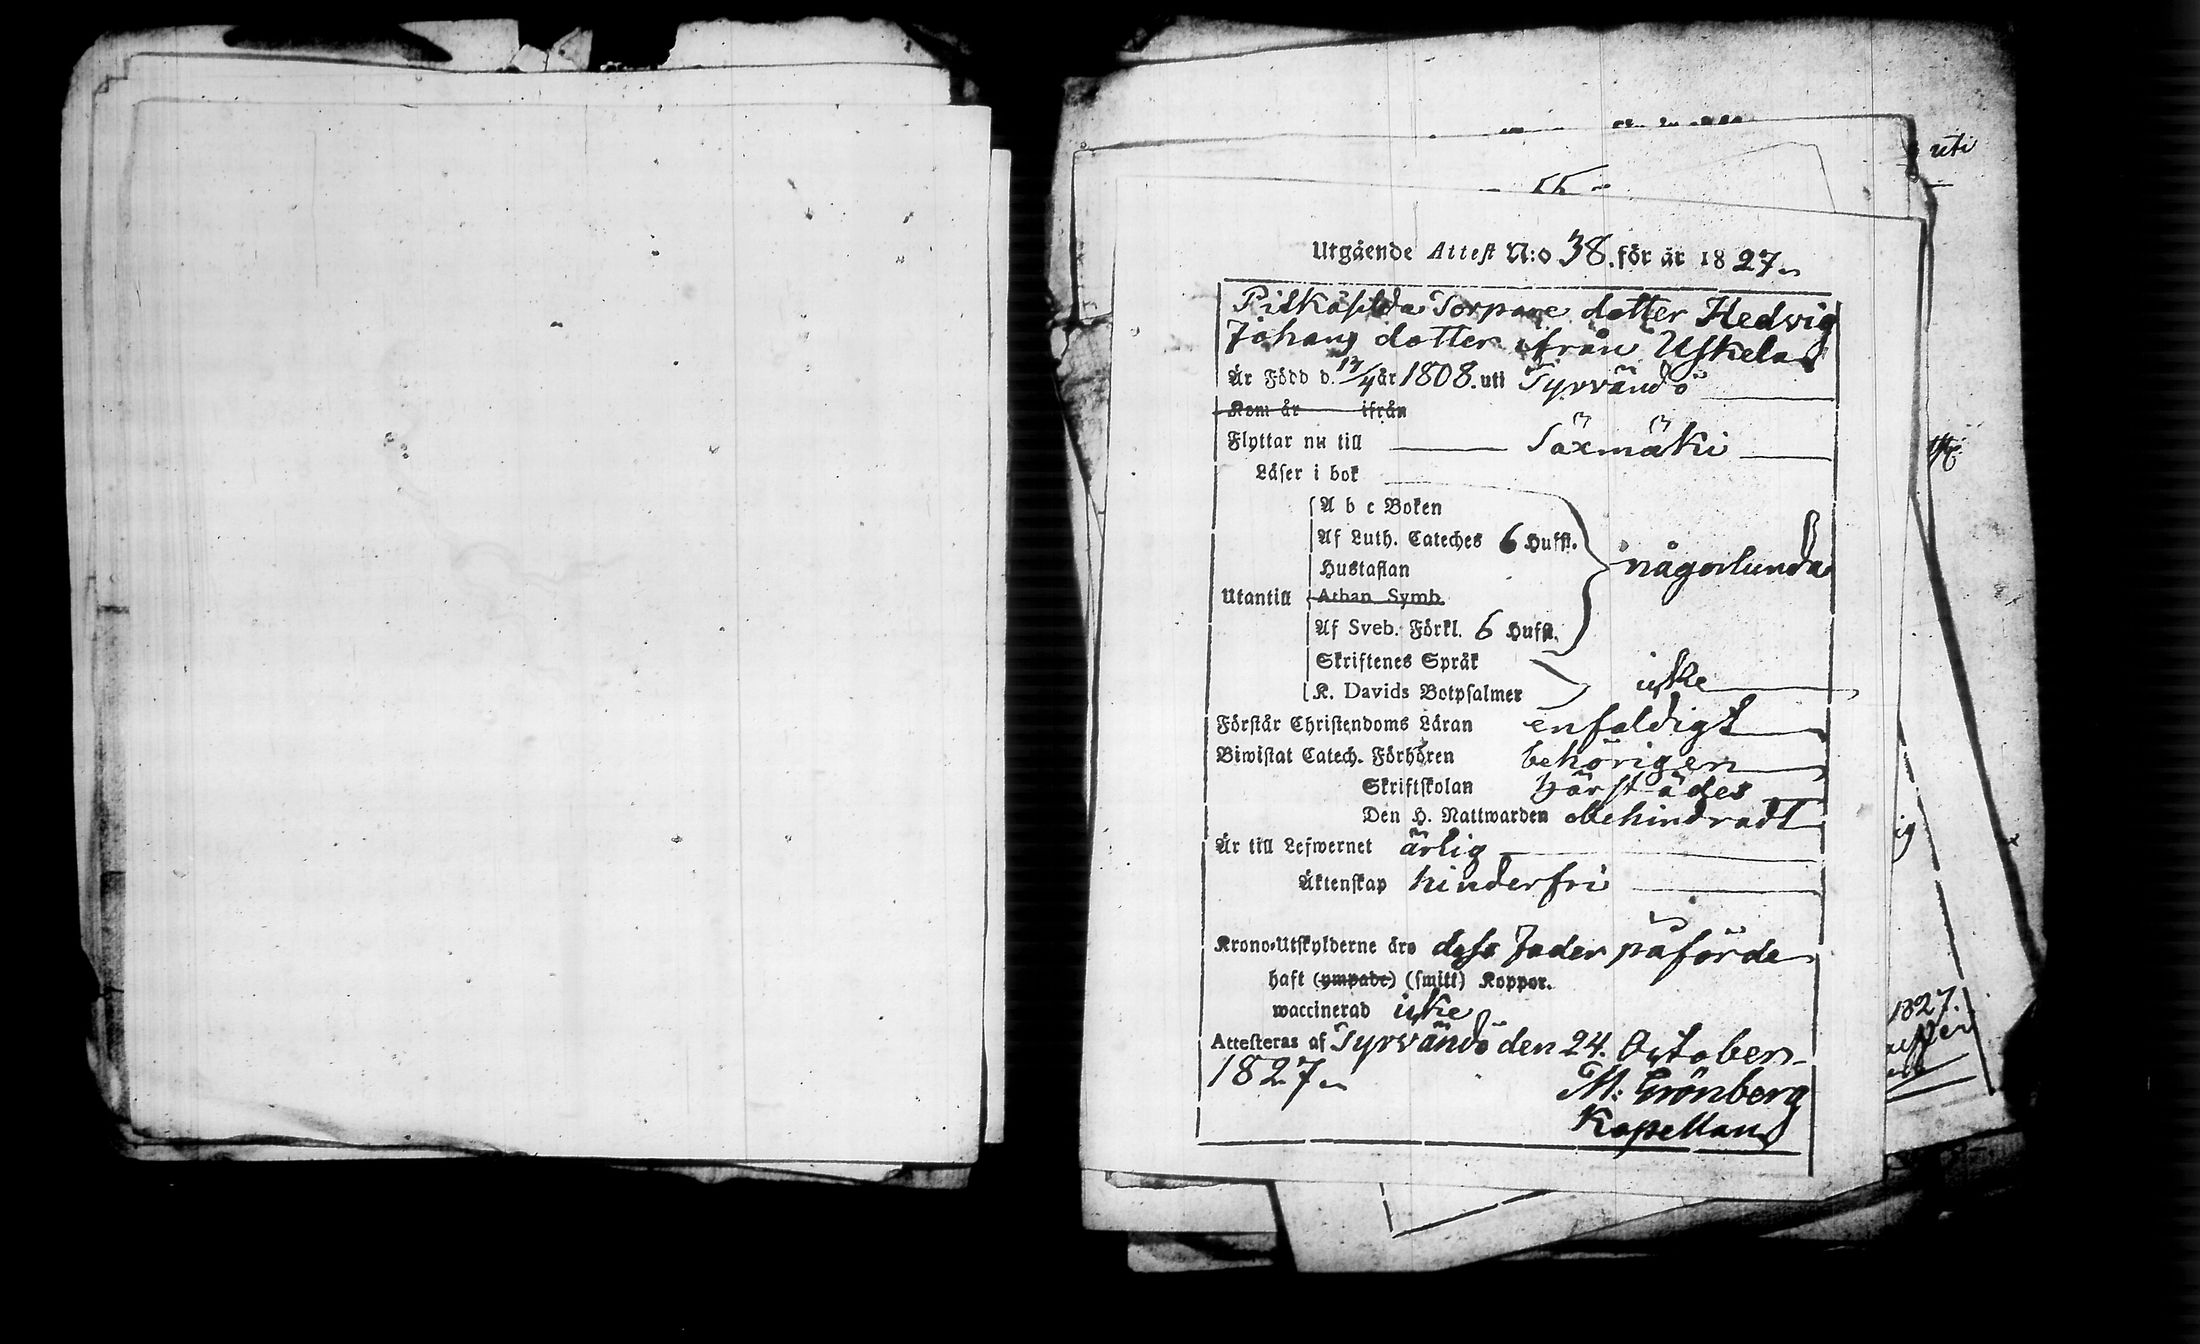 uti
Utgående Attest N:o 38. för år 1827.
Torpare dotter Hedvig
Johans dotter ifrån Uskela
Är Född d. 17/4 år 1808. uti Tyrvändö
Kom år ifrån
Flyttar nu till Säxmäki
Läser i bok
A b c Boken
Af Luth. Cateches 6 Hufst.
Hustaflan
någorlunda
Utantill
Athan. Symb.
Af Sveb. Förkl. 6 Hufst.
Skriftenes Språk
K. Davids Botpsalmer
icke
Förstår Christendoms Läran enfaldigt
Biwistat Catech. Förhören behörigen
Skriftskolan härstädes
Den H. Nattwarden obehindradt
Är till Lefwernet ärlig
Äktenskap hinderfri
Krono-Utskylderne äro dess Fader påförde
haft (ympade) (smitt) Koppor.
waccinerad icke
Attesteras af Tyrvändö den 24. October
1827.
M: Grönberg
Kapellan
ig
1827.